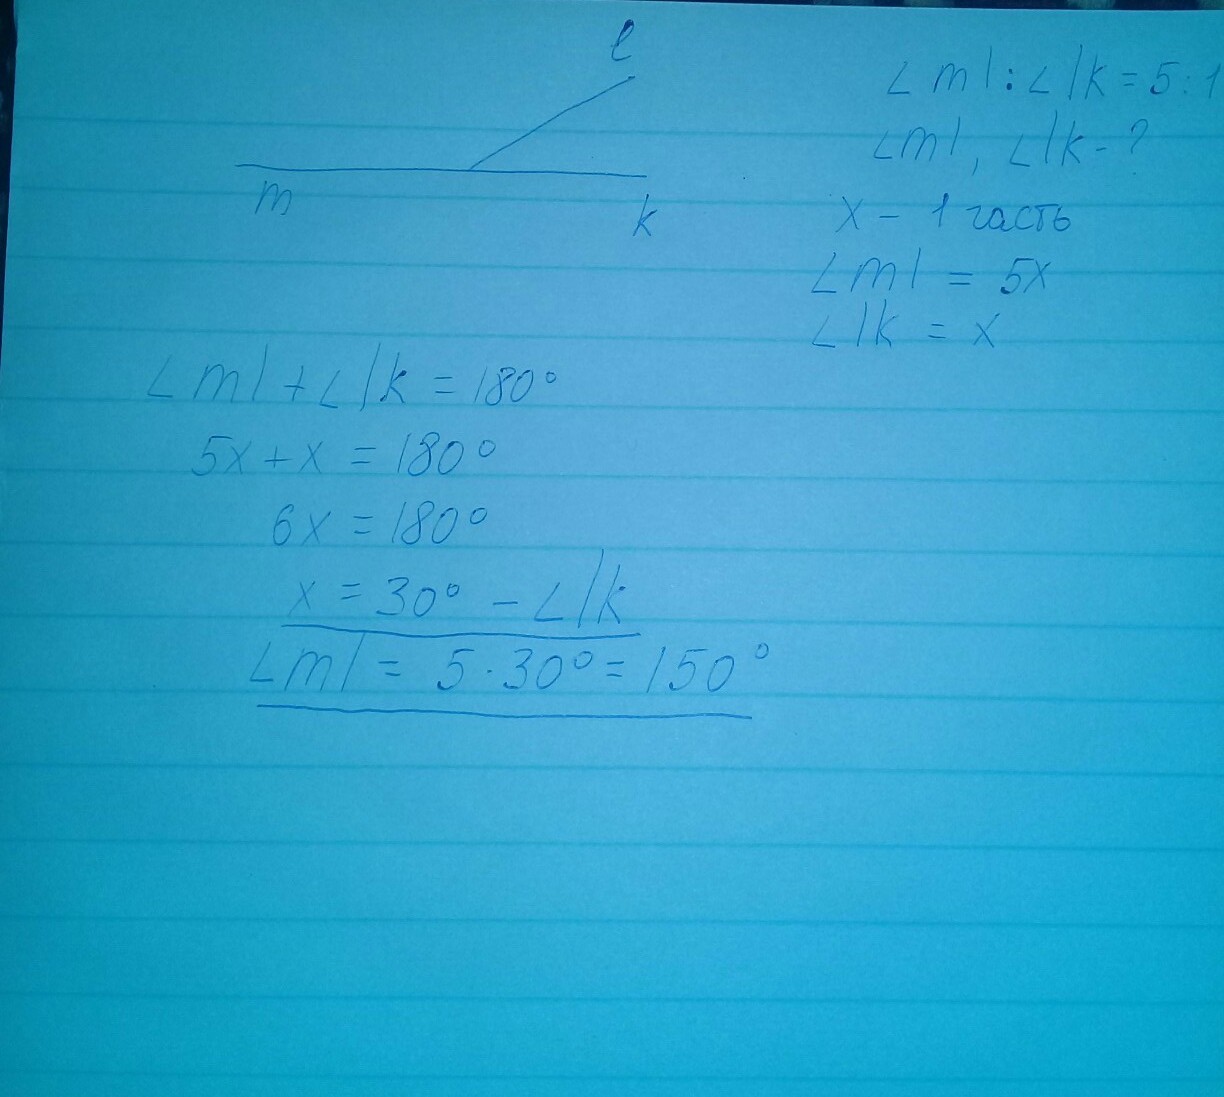 l
m
k
∠ml:∠lk=5:1
∠ml, ∠lk-?
x – 1 часть
∠ml = 5x
∠lk = x
∠ml+∠lk=180°
5x+x=180°
6x=180°
x=30° – ∠lk
∠ml= 5·30°=150°